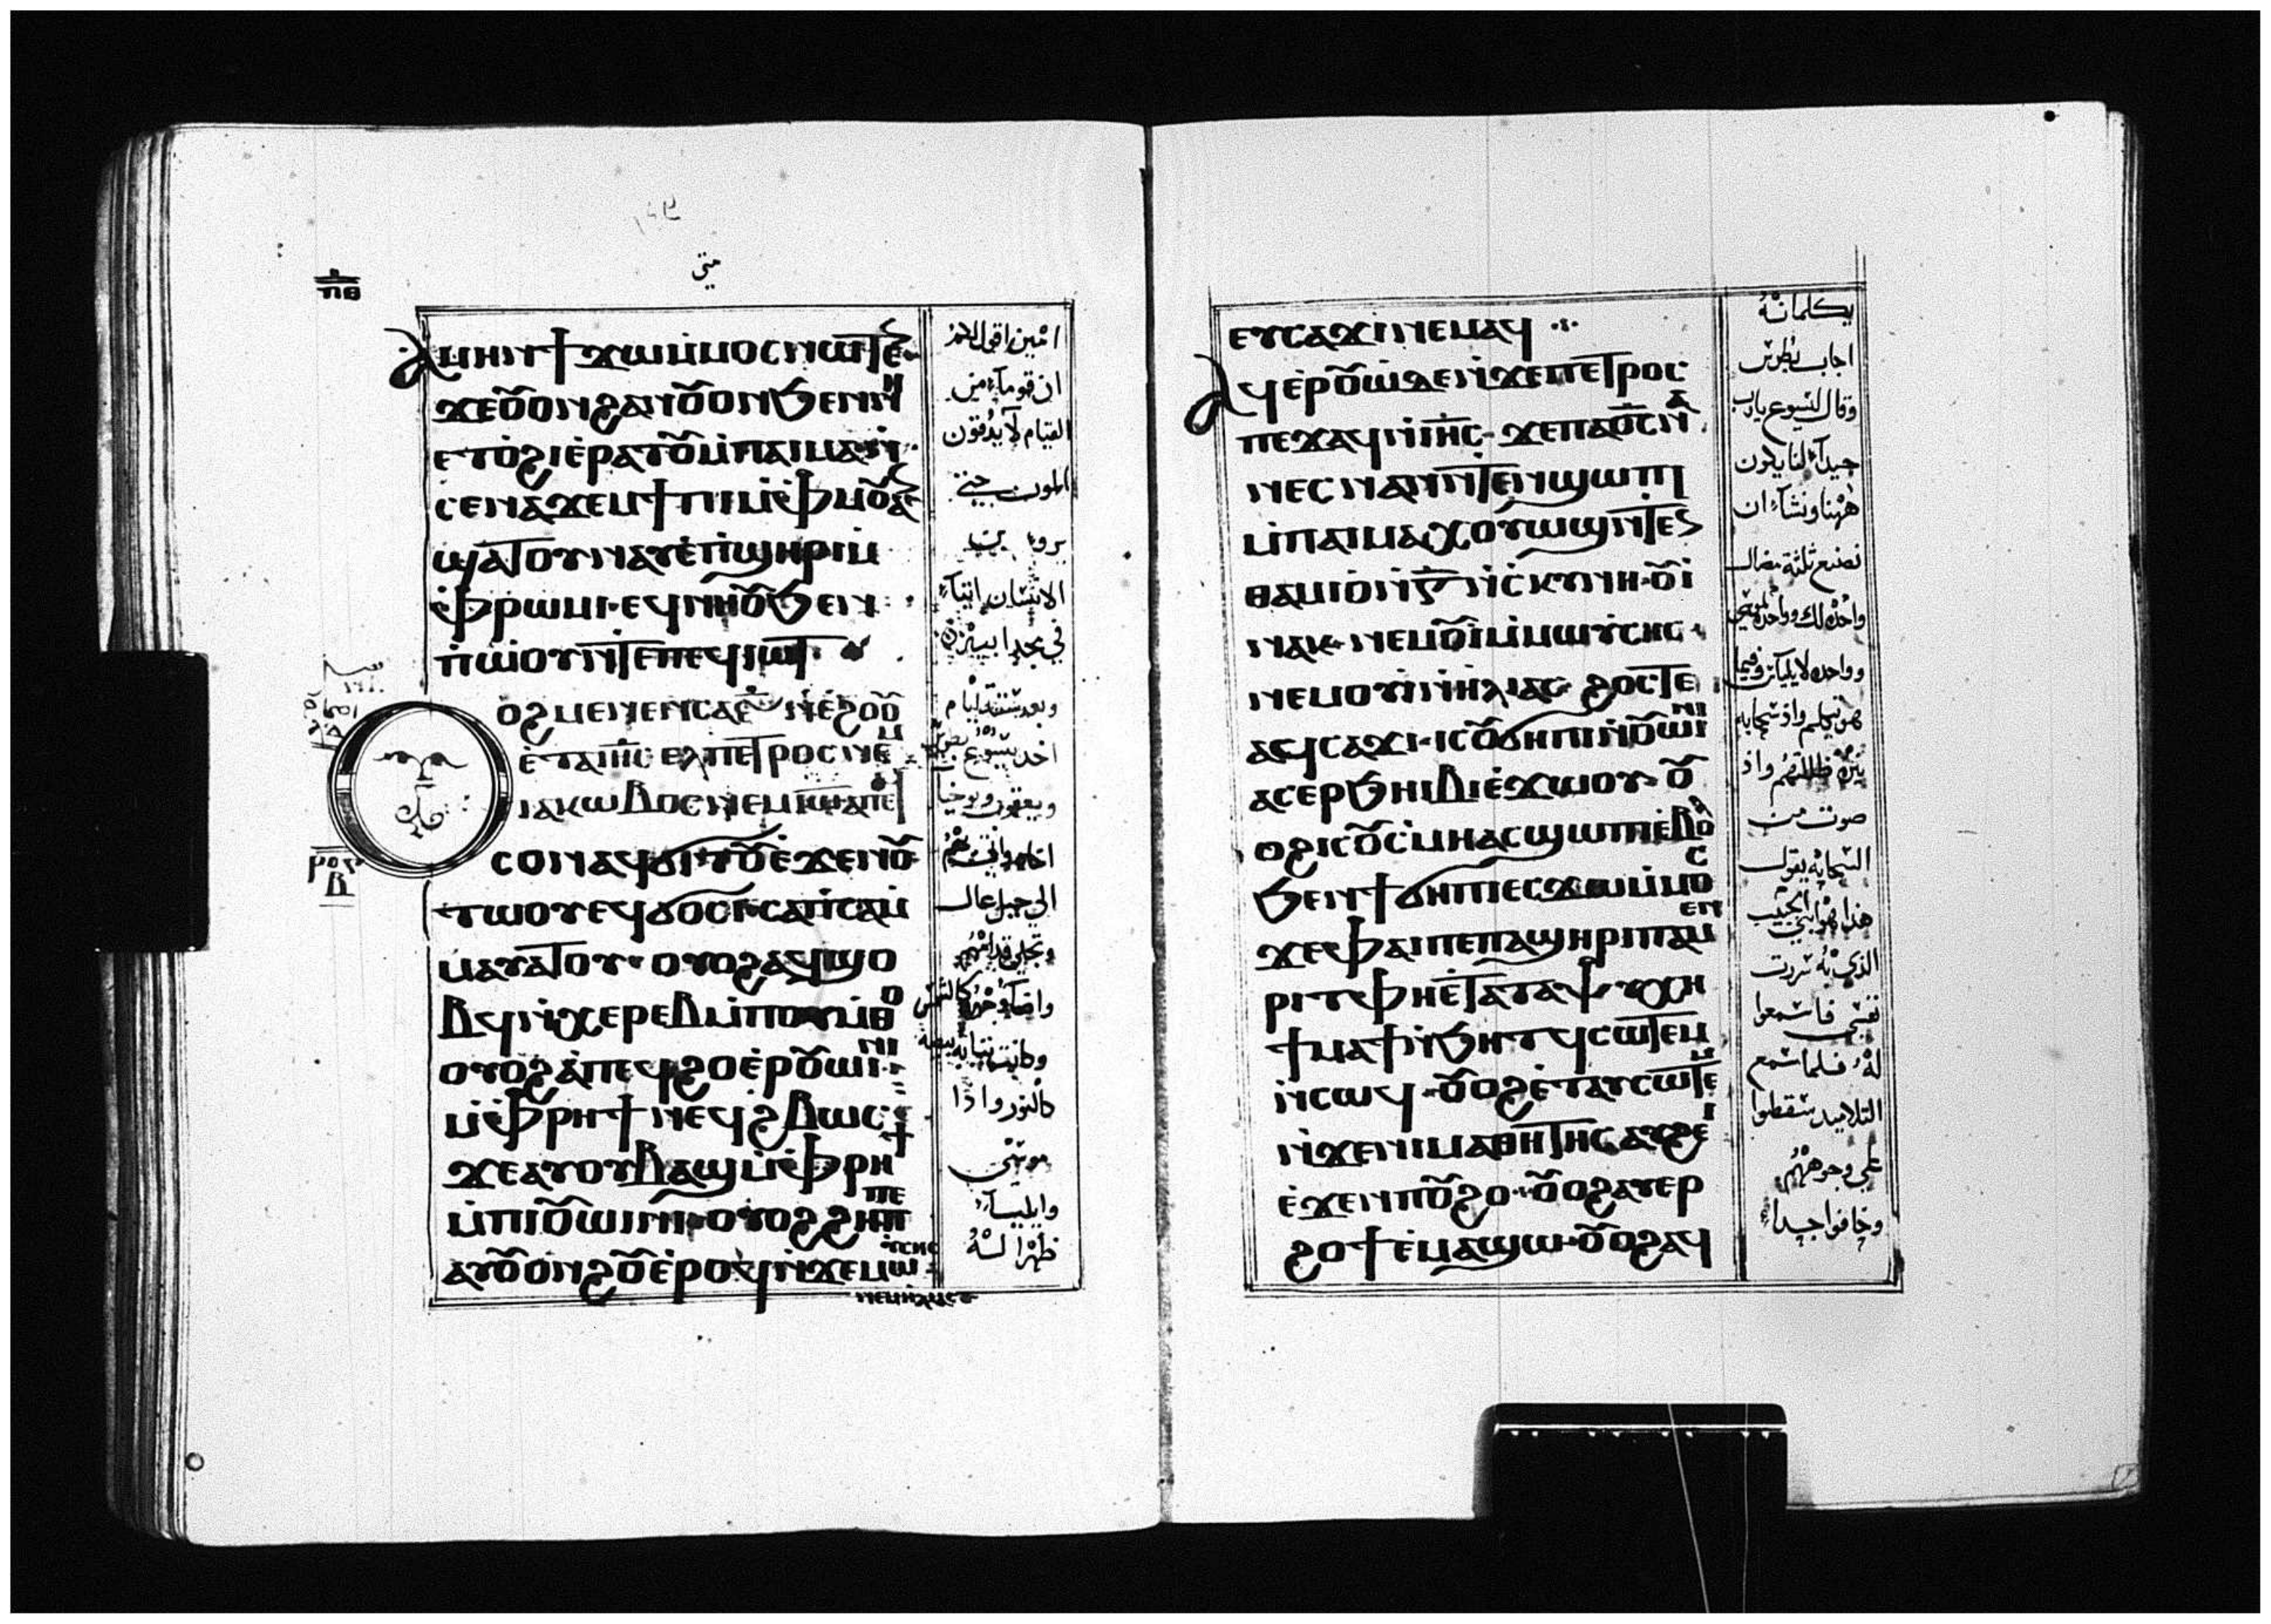 متي
ⲡⲑ
Ⲁⲙⲏⲛ ϯϫⲱ ⲙ̇ⲙⲟⲥ ⲛⲱⲧⲉⲛ
ϫⲉⲟⲩⲟⲛ ϩⲁⲛⲟⲩⲟⲛ ϧⲉⲛⲛⲏ
ⲉⲧⲟ̇ϩⲓ ⲉ̇ⲣⲁⲧⲟⲩ ⲙ̇ⲡⲁⲓⲙⲁ ⲛ̇
ⲥⲉⲛⲁϫⲉⲙϯⲡⲓ ⲙ̇ⲫⲙⲟⲩ ⲁⲛ
ϣⲁⲧⲟⲩⲛⲁⲩ ⲉ̇ⲡ̇ϣⲏⲣⲓ ⲙ̇
ⲫⲣⲱⲙⲓ ⲉϥⲛⲏⲟⲩ ϧⲉⲛ
ⲡ̇ⲱ̇ⲟⲩ ⲛ̇ⲧⲉⲡⲉϥⲓⲱⲧ
Ⲟⲩⲟϩ ⲙⲉⲛⲉⲛⲥⲁ ⲋ̅ ⲛ̇ⲉ̇ϩⲟⲟⲩ
ⲉ̇ⲧⲁⲓⲏ̅ⲥ̅ ⲉⲗ ⲡⲉⲧⲣⲟⲥ ⲛⲉⲙ
ⲓⲁⲕⲱⲃⲟⲥ ⲛⲉⲙ ⲓⲱⲁ ⲡⲉϥ
ⲥⲟⲛ ⲁϥϭⲓⲧⲟⲩ ⲉ̇ϫⲉⲛⲟⲩ
ⲧⲱⲟⲩ ⲉϥϭⲟⲥⲓ ⲥⲁⲡ̇ⲥⲁ ⲙ̇
ⲙⲁⲩⲁⲧⲟⲩ ⲟⲩⲟϩ ⲁϥϣⲟ
ⲃϥ ⲛ̇ⲭⲉⲣⲉⲃ ⲙ̇ⲡⲟⲩⲙ̇ⲑⲟ
ⲟⲩⲟϩ ⲁ̇ⲡⲉϥϩⲟ ⲉ̇ⲣⲟⲩⲱⲓⲛⲓ
ⲙ̇ⲫⲣⲏϯ ⲛⲉϥϩⲃⲱⲥ
ϫⲉ ⲁⲩⲟⲩⲃⲁϣ ⲙ̇ⲫⲣⲏϯ
ⲙ̇ⲡⲓⲟⲩⲱⲓⲛⲓ ⲟⲩⲟϩ ϩⲏⲡⲡⲉ
ⲁⲩⲟⲩⲟⲛϩⲟⲩ ⲉ̇ⲣⲟϥ ⲛ̇ϫⲉ ⲙⲱⲩⲥⲏⲥ
ⲛⲉⲙ ⲏⲗⲓⲁⲥ
امين اقول لكم
ان قوماً من
القيام لا يذوقون
الموت حتي
يروا بن
الانسان اتياً
في مجد ابيه
وبعد ستة ايام
اخد يسوع بطرس
ويعقوب ويوحنا
الي جبل عال
وتجلي قدامهم
واضاء وجهه كالشمس
وكانت ثيابه بيضه
كالنور واذا
موسي
وايليا
ظهرا له
ⲉⲩⲥⲁϫⲓ ⲛⲉⲙⲁϥ
Ⲁϥⲉⲣⲟⲩⲱ̇ ⲇⲉ ⲛ̇ϫⲉ ⲡⲉⲧⲣⲟⲥ
ⲡⲉϫⲁϥ ⲛ̇ⲓⲏ̅ⲥ̅ ϫⲉ ⲡⲁⲟ̅ⲥ̅ ⲛⲁ̇
ⲛⲉⲥ ⲛⲁⲛ ⲛ̇ⲧⲉⲛϣⲱⲡⲓ
ⲙ̇ⲡⲁⲓⲙⲁ ⲭⲟⲩⲱϣ ⲛ̇ⲧⲉⲛ
ⲑⲁⲙⲓⲟ̇ ⲛ̇ⲅ̅ ⲛ̇ⲥ̇ⲕⲩⲛⲏ ⲟⲩⲓ̇
ⲛⲁⲕ ⲛⲉⲙ ⲟⲩⲓ̇ ⲙ̇ⲙⲱⲩ̇ⲥⲏⲥ
ⲛⲉⲙ ⲟⲩⲓ̇ ⲛ̇ⲏⲗⲓⲁⲥ ϩⲟⲥⲧⲉ
ⲁϥⲥⲁϫⲓ ⲓⲥ ⲟⲩϭⲏⲡⲓ ⲛ̇ⲟⲩⲱⲓⲛⲓ
ⲁⲥⲉⲣϧⲏⲓⲃⲓ ⲉ̇ϫⲱⲟⲩ ⲟⲩ
ⲟϩ ⲓⲥ ⲟⲩⲥ̇ⲙⲏ ⲁⲥϣⲱⲡⲓ ⲉ̇ⲃⲟⲗ
ϧⲉⲛ ϯϭⲏⲡⲓ ⲉⲥϫⲱ ⲙ̇ⲙⲟⲥ
ϫⲉ ⲫⲁⲓ ⲡⲉ ⲡⲁϣⲏⲣⲓ ⲡⲁⲙⲉⲛ
ⲣⲓⲧ ⲫⲏⲉ̇ⲧⲁⲧⲁⲯⲩⲭⲏ
ϯⲙⲁϯ ⲛ̇ϧⲏⲧϥ ⲥⲱⲧⲉⲙ
ⲛ̇ⲥⲱϥ ⲟⲩⲟϩ ⲉ̇ⲧⲁⲩⲥⲱⲧⲉⲙ
ⲛ̇ϫⲉ ⲛⲓⲙⲁⲑⲏⲧⲏⲥ ⲁⲩϩⲉⲓ
ⲉ̇ϫⲉⲛ ⲡⲟⲩϩⲟ ⲟⲩⲟϩ ⲁⲩⲉⲣ
ϩⲟϯ ⲉ̇ⲙⲁϣⲱ ⲟⲩⲟϩ ⲁϥ
يكلمانه
اجاب بطرس
وقال ليسوع يارب
جيداً لنا يكون
ههنا ونشاء ان
نصنع ثلثة مضال
واحده لك وواحده لموسي
وواحده لايلياس وفيما
هو يتكلم واذ سحابه
نيره ظللتهم واذ
صوت من
السحابه يقول
هذا هو ابني الحبيب
الذي به سررت
نفسي فاسمعوا
له فلما سمع
التلاميد سقطوا
علي وجوههم
وخافوا جداً